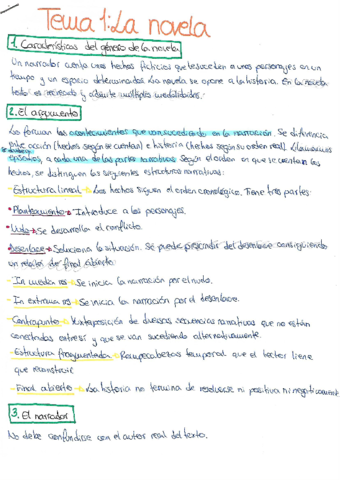 Tema 1: La novela
1. Características del género de la novela
Un narrador cuenta unos hechos ficticios que le suceden a unos personajes en un
tiempo y un espacio determinados. La novela se opone a la historia. En la novela
todo es recreado y admite múltiples modalidades.
2. El argumento
Lo forman los acontecimientos que van sucediendo en la narración. Se diferencia
entre acción (hechos según se cuentan) e historia (hechos según su orden real). Llamamos
episodios, a cada una de las partes narrativas. Según el orden en que se cuentan los
hechos, se distinguen las siguientes estructuras narrativas:
- Estructura lineal → Los hechos siguen el orden cronológico. Tiene tres partes:
• Planteamiento → Introduce a los personajes.
• Nudo → Se desarrolla el conflicto.
• Desenlace → Soluciona la situación. Se puede prescindir del desenlace consiguiendo
un relato de final abierto.
- In medias res → Se inicia la narración por el nudo.
- In extrema res → Se inicia la narración por el desenlace.
- Contrapunto → Yuxtaposición de diversas secuencias narrativas que no están
conectadas entre sí y que se van sucediendo alternativamente.
- Estructura fragmentada → Rompecabezas temporal que el lector tiene
que reconstruir
- Final abierto → La historia no termina de resolverse ni positiva ni negativament
3. El narrador
No debe confundirse con el autor real del texto.